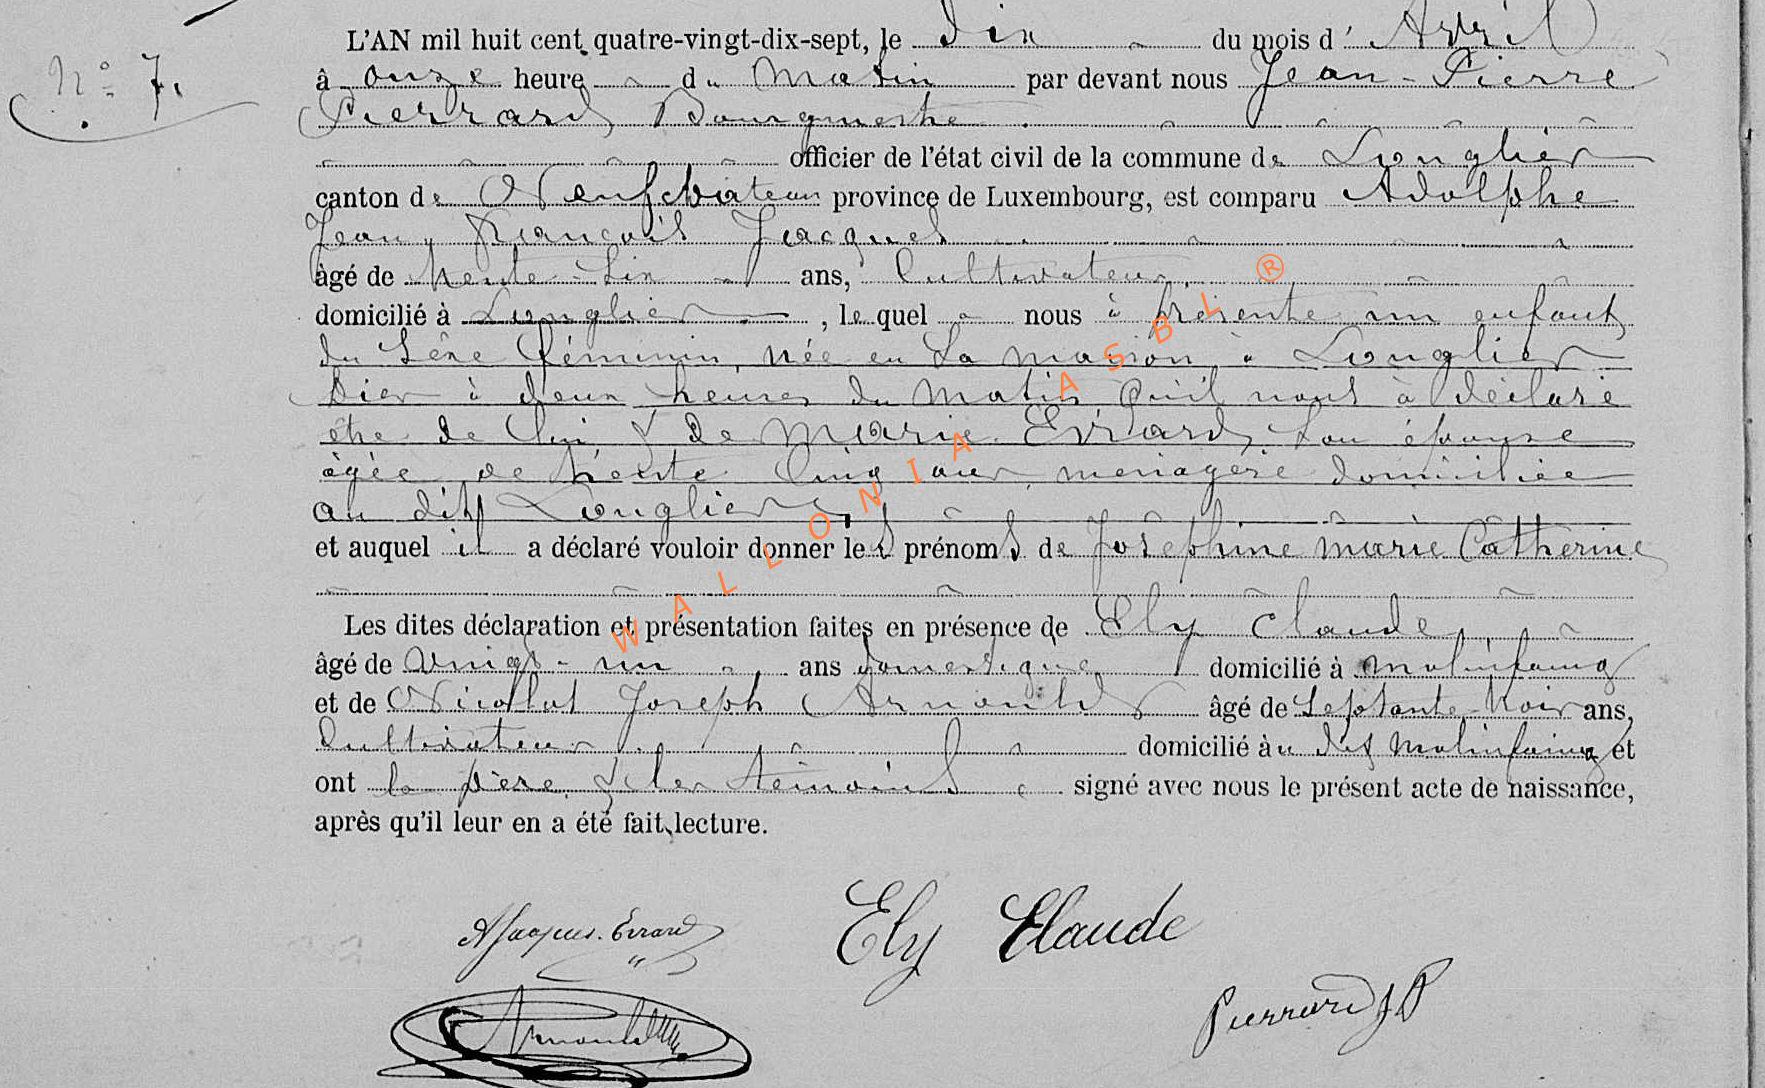 N° 7.
L'AN mil huit cent quatre-vingt-dix-sept, le dix du mois d' Avril
à onze heure du Matin par devant nous Jean-Pierre
Pierrard, Bourgmestre
officier de l'état civil de la commune de Longlier
canton de Neufchâteau province de Luxembourg, est comparu Adolphe
Jean François Jacques
àgé de trente-six ans, Cultivateur
domicilié à Longlier, le quel nous à présenté un enfant
du Sexe féminin, née en sa maison à Longlier
hier à deux heures du matin, qu'il nous à déclaré
être de lui & de Marie Evrard, son épouse
âgée de trente cinq ans, ménagère domiciliée
au dit Longlier,
et auquel il a déclaré vouloir donner les prénoms de Joséphine Marie Catherine
Les dites déclaration et présentation faites en présence de Ely Claude,
âgé de vingt-un ans domestique domicilié à Molinfaing
et de Nicolas Joseph Arnould âgé de septante-trois ans,
Cultivateur domicilié au dit Molinfaing et
ont le père & les témoins signé avec nous le présent acte de naissance,
après qu'il leur en a été fait lecture.
AJacques. Evrard
Ely Claude
Arnould
Pierrard JP
WALLONIA ASBL ®